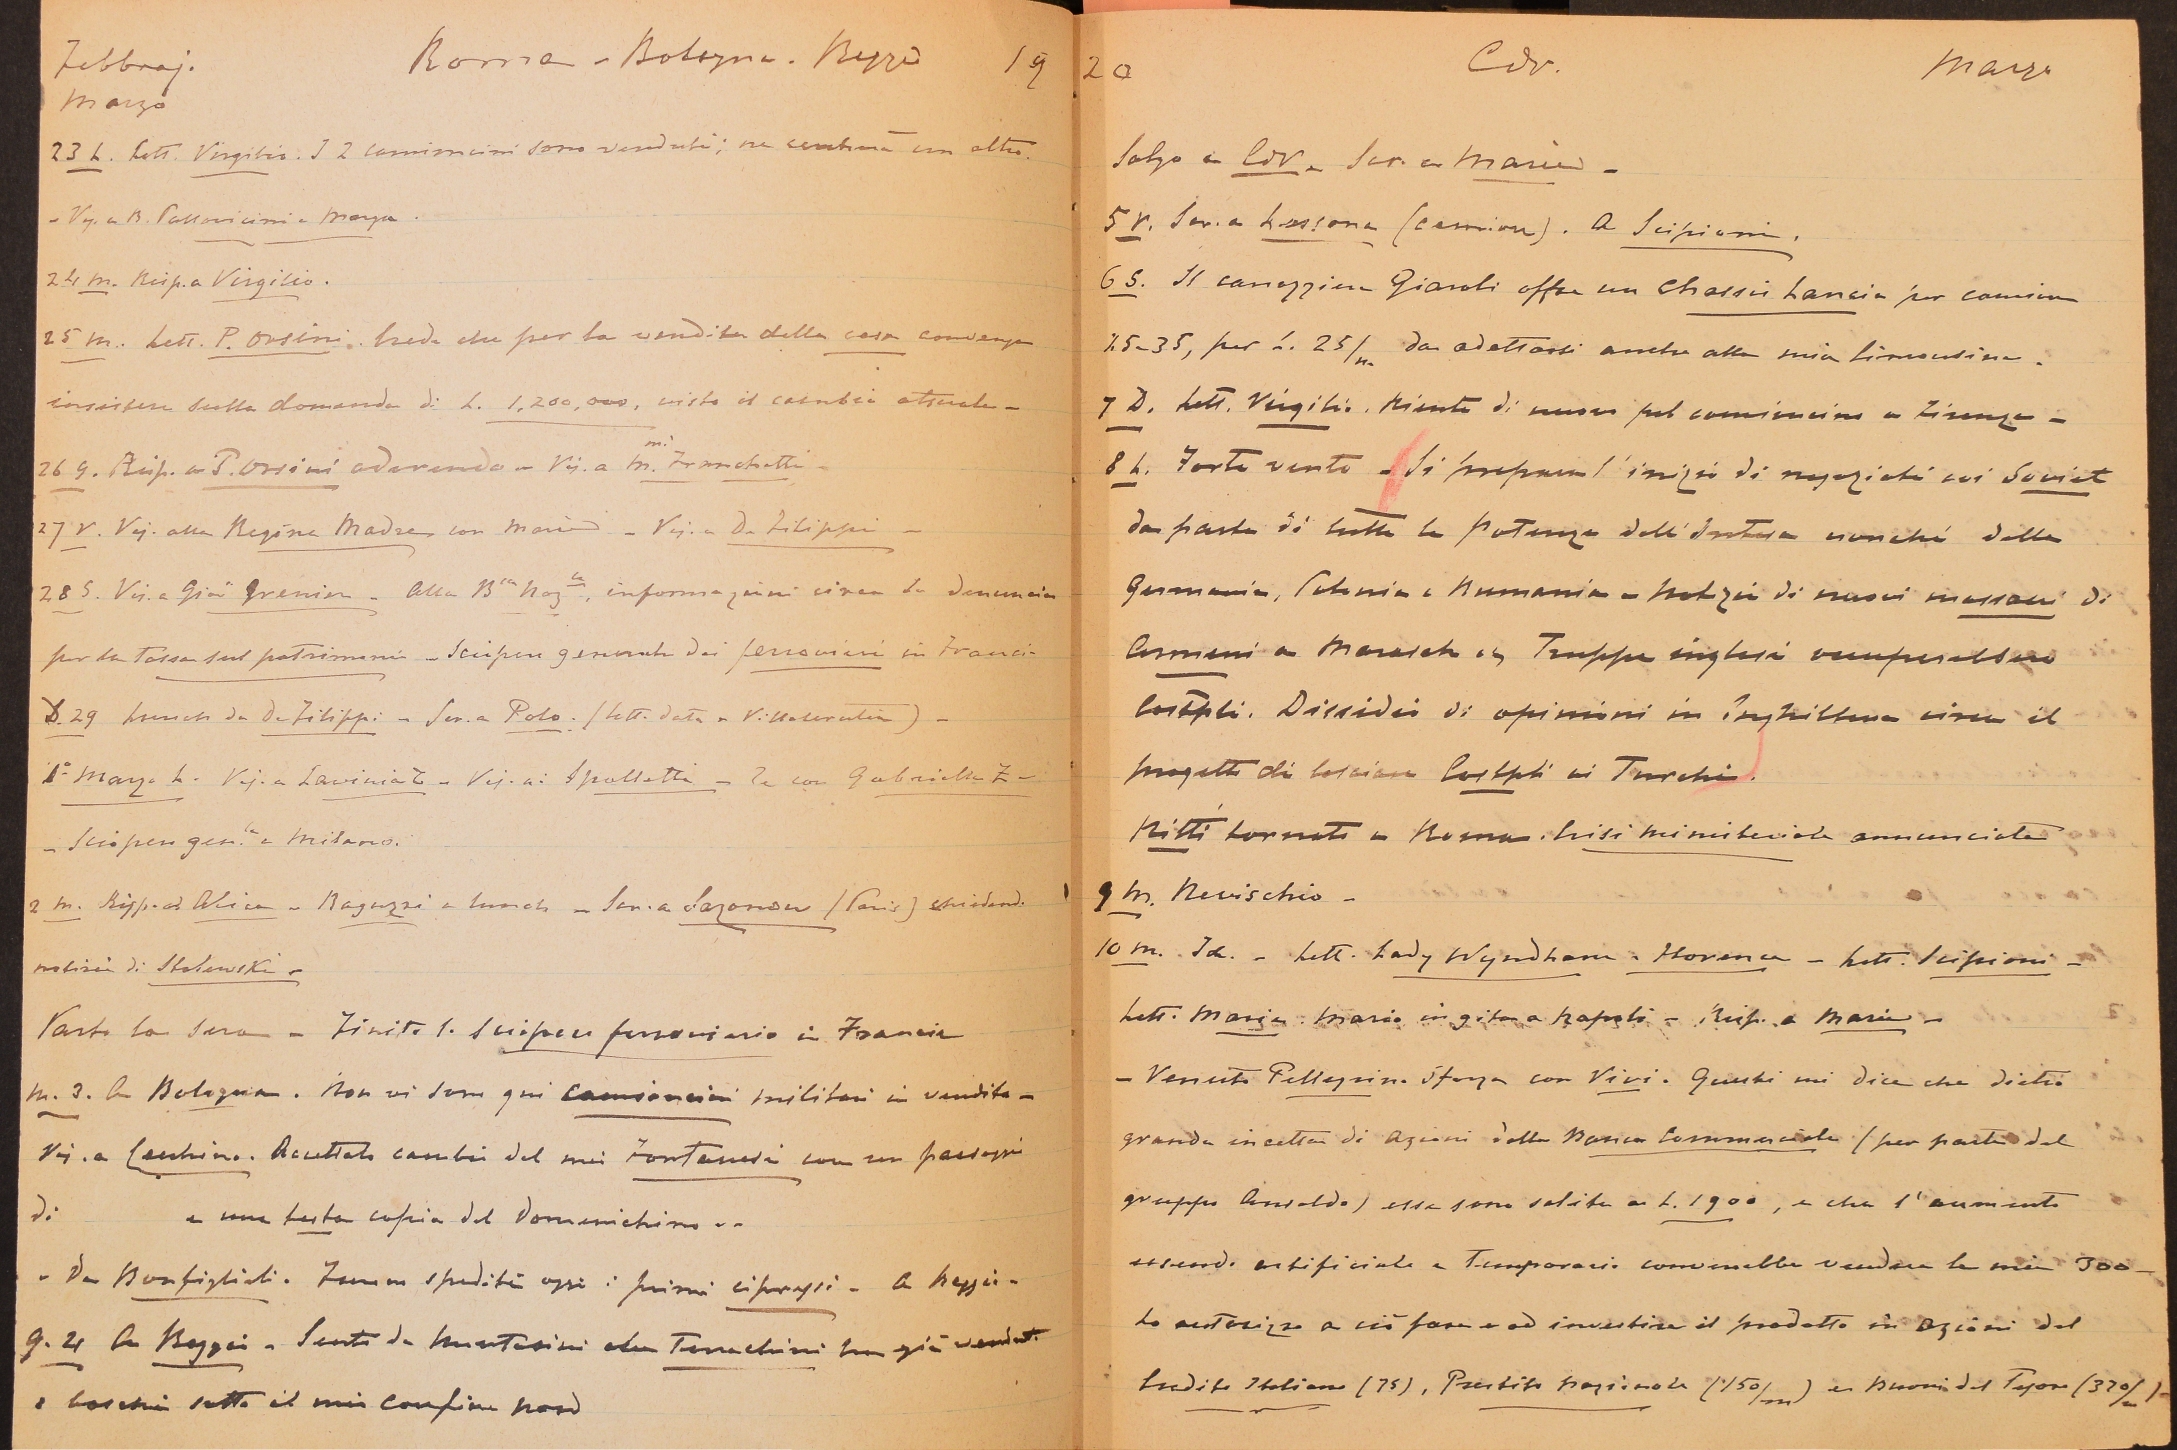 Febbraj. Roma - Bologna. Reggio 19
Marzo
23 L. Lett. Virgilio. I 2 camioncini sono venduti; ne cercherà un altro.
- Vis. a B. Pallavicini e Marya.
24 M. Risp. a Virgilio.
25 M. Lett. P. Orsini. Crede che per la vendita della casa convenga
insistere sulla domanda di L. 1,200,000, visto il cambio attuale -
26 G. Risp. a P. Orsini aderendo - Vis. a M. Franchetti -
27 V. Vis. alla Regina Madre con Maria - Vis. a De Filippi -
28 S. Vis. a Grenier - Alla Bca Nazle, informazioni circa la denuncia
per la Tassa sul patrimonio - Sciopero generale dei ferrovieri in Francia
D. 29 Lunch da De Filippi - Scr. a Polo. (lett. data a ) -
1° Marzo L. Vis. a Lavinia T - Vis. ai Spalletti - Te con Gabriella Z -
- Sciopero gen.le a Milano.
2 M. Risp. ad Alice - Ragazzi a lunch - Scr. a Sazonow (Paris) chiedend.
notizie di
Parto la sera - Finito lo sciopero ferroviario in Francia
M. 3. A Bologna. Non vi sono qui camioncini militari in vendita -
Vis. a Cecchino. Accettato cambio del mio Fontanesi con un paesaggio
di e una testa copia del Domenichino --
- Da Bonfiglioli. Furon spediti oggi i primi cipressi - A Reggio -
G. 4 A Reggio - Sento da che Terrachini ha già venduto
i boschi sotto il mio confine nord
20 Cdv. Marzo
Salgo a CdV - Scr. a Maria -
5 V. Scr. a Lessona (camion). A Scipioni.
6 S. Il carrozziere Giaroli offre un chassis Lancia per camion
25-35, per L. 25/m da adattarsi anche alla mia limousine.
7 D. Lett. Virgilio. Niente di nuovo pel camioncino a Firenze -
8 L. Forte vento - Si prepara l'inizio di negoziati coi Soviet
da parte di tutte le Potenze dell'Intesa nonché della
Germania, Polonia e Rumania - Notizie di nuovi massacri di
Armeni a Marasch - Truppe inglesi occuperebbero
Costpli. Dissidio di opinioni in Inghilterra circa il
progetto di lasciare Costpli ai Turchi.
Nitti tornato a Roma. Crisi ministeriale annunciata
9 M. Nevischio -
10 M. Id. - Lett. Lady Wyndham - Florence - Lett. Scipioni -
Lett. Maria. Mario in gita a Napoli - Risp. a Maria -
- Venuto Pellegrino Sforza con Vivi. Questi mi dice che dietro
grande incetta di azioni della Banca Commerciale (per parte del
gruppo Ansaldo) esse sono salite a L. 1900, e che l'aumento
essendo artificiale e temporario converrebbe vendere le mie 300 -
Lo autorizzo a ciò fare e ad investire il prodotto in azioni del
Credito Italiano (75), Prestito Nazionale (150/m) e Buoni del Tesoro (370/m) -